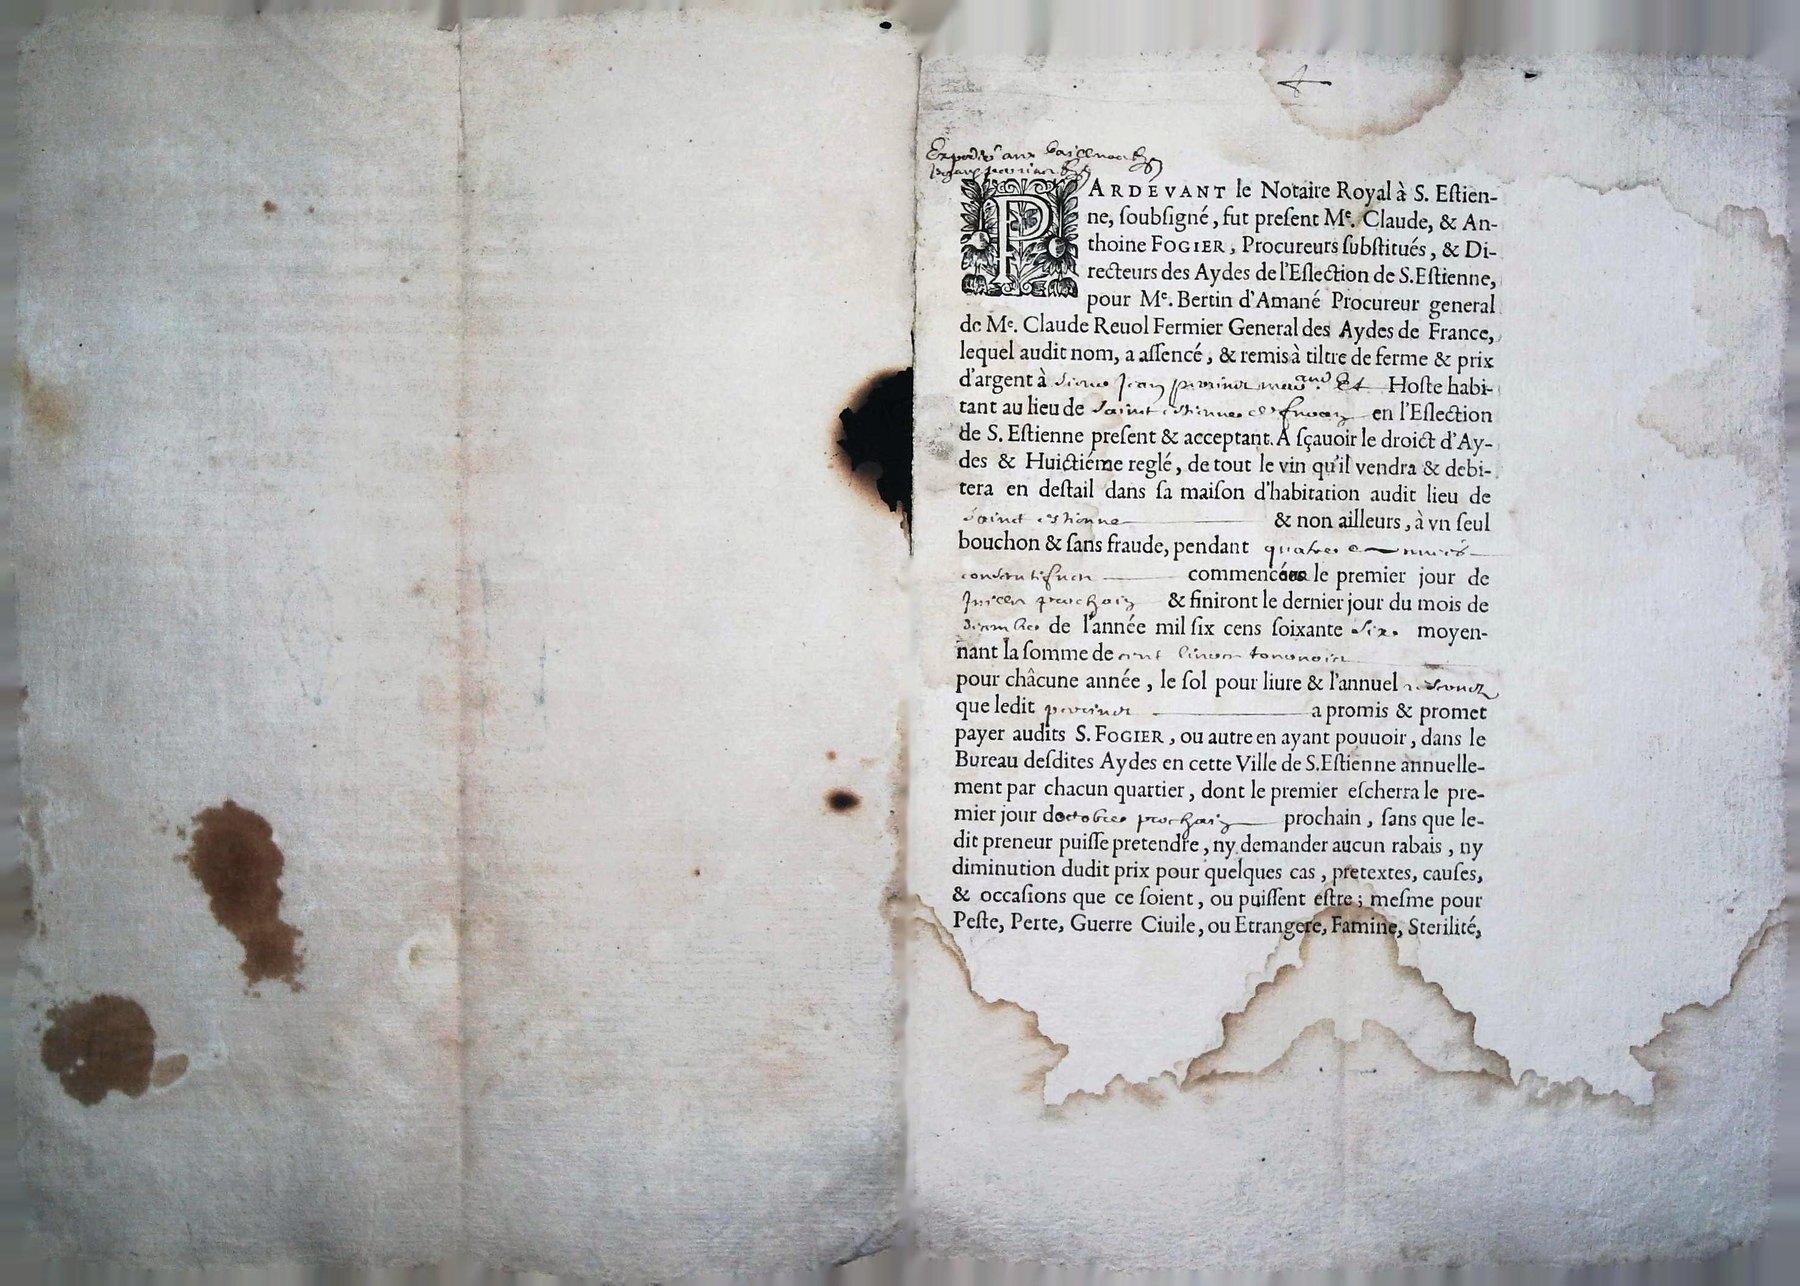 Expedié aux
PARDEVANT le Notaire Royal à S. Eſtien-
ne, ſoubſigné, fut preſent Me. Claude, & An-
thoine FOGIER, Procureurs ſubſtitués, & Di-
recteurs des Aydes de l'Eſlection de S. Eſtienne,
pour Me. Bertin d'Amané Procureur general
de Me. Claude Reuol Fermier General des Aydes de France,
lequel audit nom, a aſſencé, & remis à tiltre de ferme & prix
d'argent à sieur Jean perrinet Hoſte habi-
tant au lieu de saint estienne de furan en l'Eſlection
de S. Eſtienne preſent & acceptant. A ſçauoir le droict d'Ay-
des & Huictiéme reglé, de tout le vin qu'il vendra & debi-
tera en deſtail dans ſa maiſon d'habitation audit lieu de
sainct estienne & non ailleurs, à vn ſeul
bouchon & ſans fraude, pendant quatre années
consecutifues commencées le premier jour de
prochain & finiront le dernier jour du mois de
de l'année mil ſix cens ſoixante six moyen-
nant la ſomme de cent liures tournois
pour châcune année, le ſol pour liure & l'annuel
que ledit perrinet a promis & promet
payer audits S. FOGIER, ou autre en ayant pouuoir, dans le
Bureau deſdites Aydes en cette Ville de S. Eſtienne annuelle-
ment par chacun quartier, dont le premier eſcherra le pre-
mier jour doctobre prochain prochain, ſans que le-
dit preneur puiſſe pretendre, ny demander aucun rabais, ny
diminution dudit prix pour quelques cas, pretextes, cauſes,
& occaſions que ce ſoient, ou puiſſent eſtre; meſme pour
Peſte, Perte, Guerre Ciuile, ou Etrangere, Famine, Sterilité,